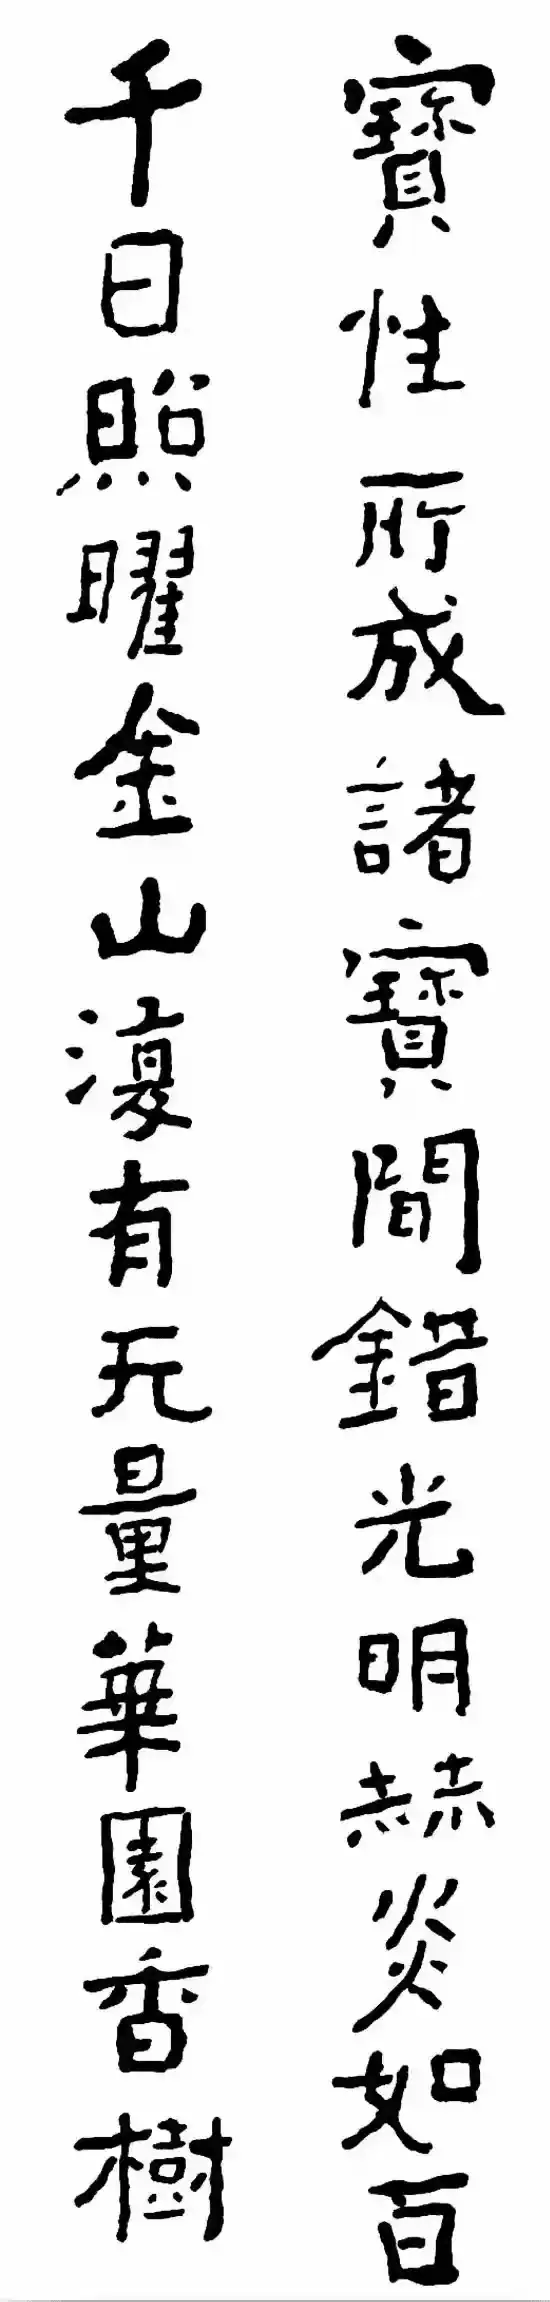 寶性所成諸寶間錯光明赫炎如百
千日照曜金山復有无量華園香樹